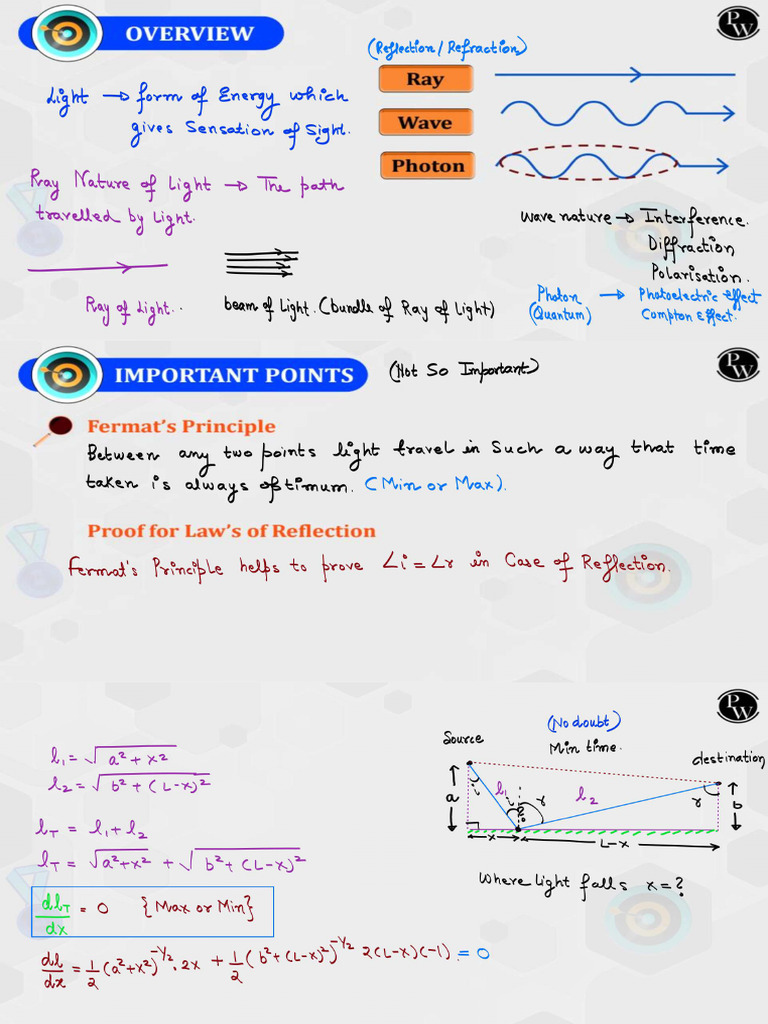 OVERVIEW
PW
(Reflection / Refraction)
Ray
Light → form of Energy which
gives Sensation of Sight.
Wave
Photon
Ray Nature of Light → The path
travelled by Light.
wave nature → Interference.
Diffraction
Polarisation.
Ray of Light..
beam of Light. (bundle of Ray of Light)
Photon → Photoelectric effect
(Quantum) Compton Effect.
IMPORTANT POINTS (Not So Important)
PW
Fermat's Principle
Between any two points light travel in Such a way that time
taken is always optimum. (Min or Max).
Proof for Law's of Reflection
Fermat's Principle helps to prove ∠i = ∠r in Case of Reflection.
PW
l₁ = √(a² + x²)
l₂ = √(b² + (L-x)²)
l_T = l₁ + l₂
l_T = √(a²+x²) + √(b² + (L-x)²)
dl_T/dx = 0 {Max or Min}
dl/dx = 1/2 (a²+x²)^(-1/2) . 2x + 1/2 (b² + (L-x)²)^(-1/2) 2(L-x)(-1) = 0
(No doubt)
Min time.
Source
destination
a
i
l₁
i
r
l₂
r
b
x
L-x
Where light falls x = ?